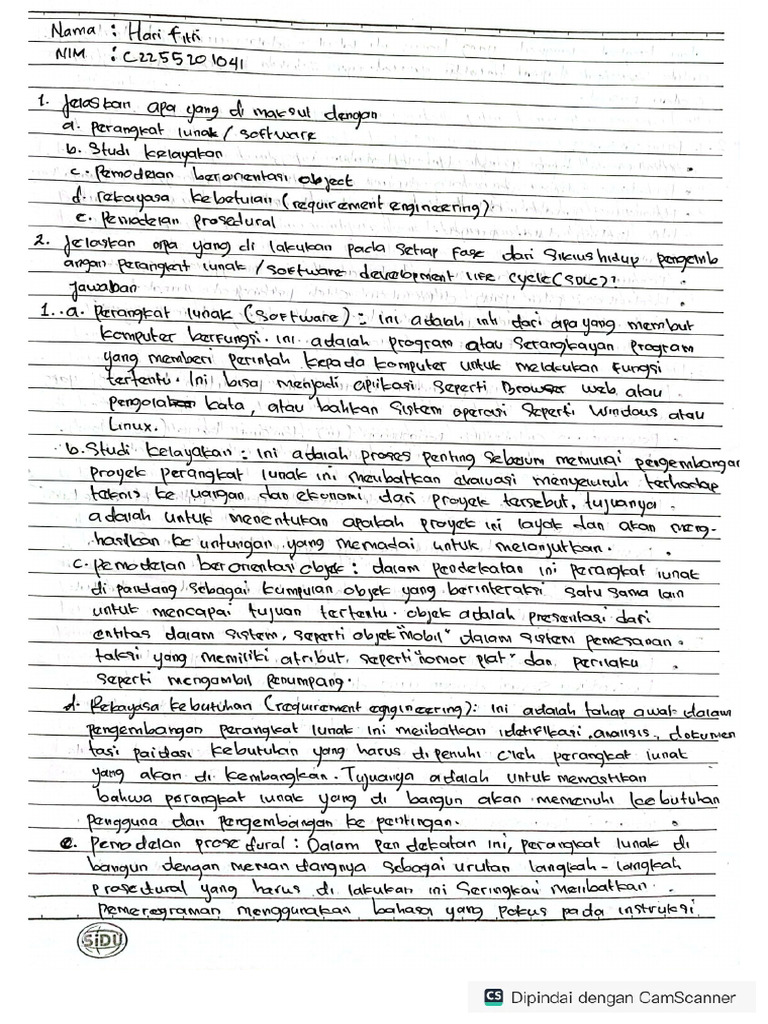 Nama : Hari fitri
NIM : C2255201041
1. Jelaskan apa yang di maksut dengan
a. Perangkat lunak / software
b. Studi kelayakan
c. Pemodelan berorientasi object
d. rekayasa kebetulan (requirement engineering)
e. Pemodelan Prosedural
2. Jelaskan apa yang di lakukan pada setiap fase dari Siklus hidup pengemb
angan perangkat lunak / software development life cycle (SDLC)?
Jawaban
1. a. Perangkat lunak (software) : ini adalah inti dari apa yang membut
komputer berfungsi. ini adalah program atau Serangkayan program
yang memberi perintah kepada komputer untuk melakukan fungsi
tertentu. Ini bisa menjadi aplikasi seperti Browser web atau
pengolahan kata, atau bahkan Sistem operasi Seperti Windows atau
Linux.
b. Studi kelayakan : ini adalah proses penting sebelum memulai pengembangan
proyek perangkat lunak ini melibatkan evaluasi menyeluruh terhadap
teknis ke uangan dan ekonomi, dari proyek tersebut, tujuanya
adalah untuk menentukan apakah proyek ini layak dan akan meng-
hasilkan ke untungan yang memadai untuk melanjutkan.
c. pemodelan berorientasi objek : dalam pendekatan ini perangkat lunak
di pandang sebagai kumpulan objek yang berinteraksi satu sama lain
untuk mencapai tujuan tertentu. objek adalah presentasi dari
entitas dalam sistem, seperti objek "mobil" dalam sistem pemesanan
taksi yang memiliki atribut, seperti "nomor plat" dan perilaku
seperti mengambil penumpang.
d. Rekayasa kebutuhan (requirement enggineering) : ini adalah tahap awal dalam
pengembangan perangkat lunak ini melibatkan idetifikasi, analisis, dokumen
tasi paidasi kebutuhan yang harus dipenuhi oleh perangkat lunak
yang akan di kembangkan. Tujuanya adalah untuk memastikan
bahwa perangkat lunak yang di bangun akan memenuhi kebutuhan
pengguna dan pengembangan ke pentingan.
e. Pemodelan prosedural : Dalam pendekatan ini, perangkat lunak di
bangun dengan memandangnya sebagai urutan langkah-langkah
prosedural yang harus di lakukan ini Seringkali melibatkan
pemerograman menggunakan bahasa yang pokus pada instruksi
SIDU
CS Dipindai dengan CamScanner